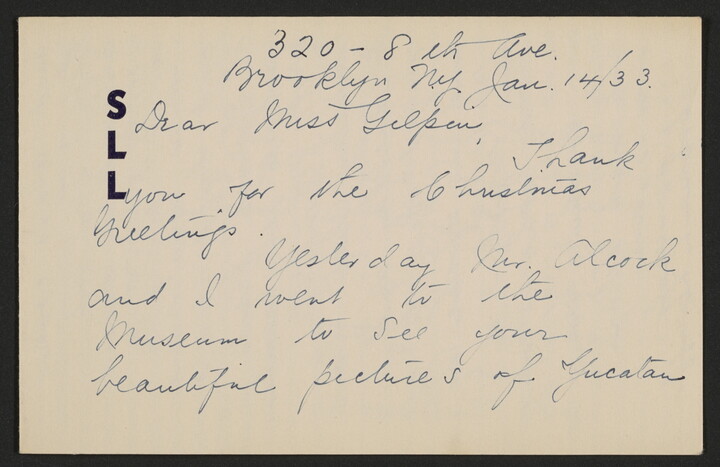 320 - 8th Ave.
Brooklyn N.Y. Jan. 14/33.
SLL
Dear Miss Gilpin,
Thank
you for the Christmas
Greetings.
Yesterday Mr. Alcock
and I went to the
Museum to see your
beautiful pictures of Yucatan